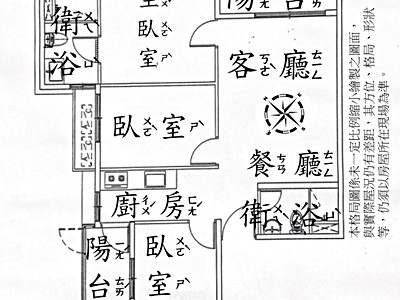 陽台
衛浴
主臥室
客廳
臥室
餐廳
廚房
衛浴
陽台
臥室
本格局圖係未一定比例縮小繪製之圖面，
與實際屋況仍有差距，其方位、格局、形狀
等，仍須以房屋所在現場為準。